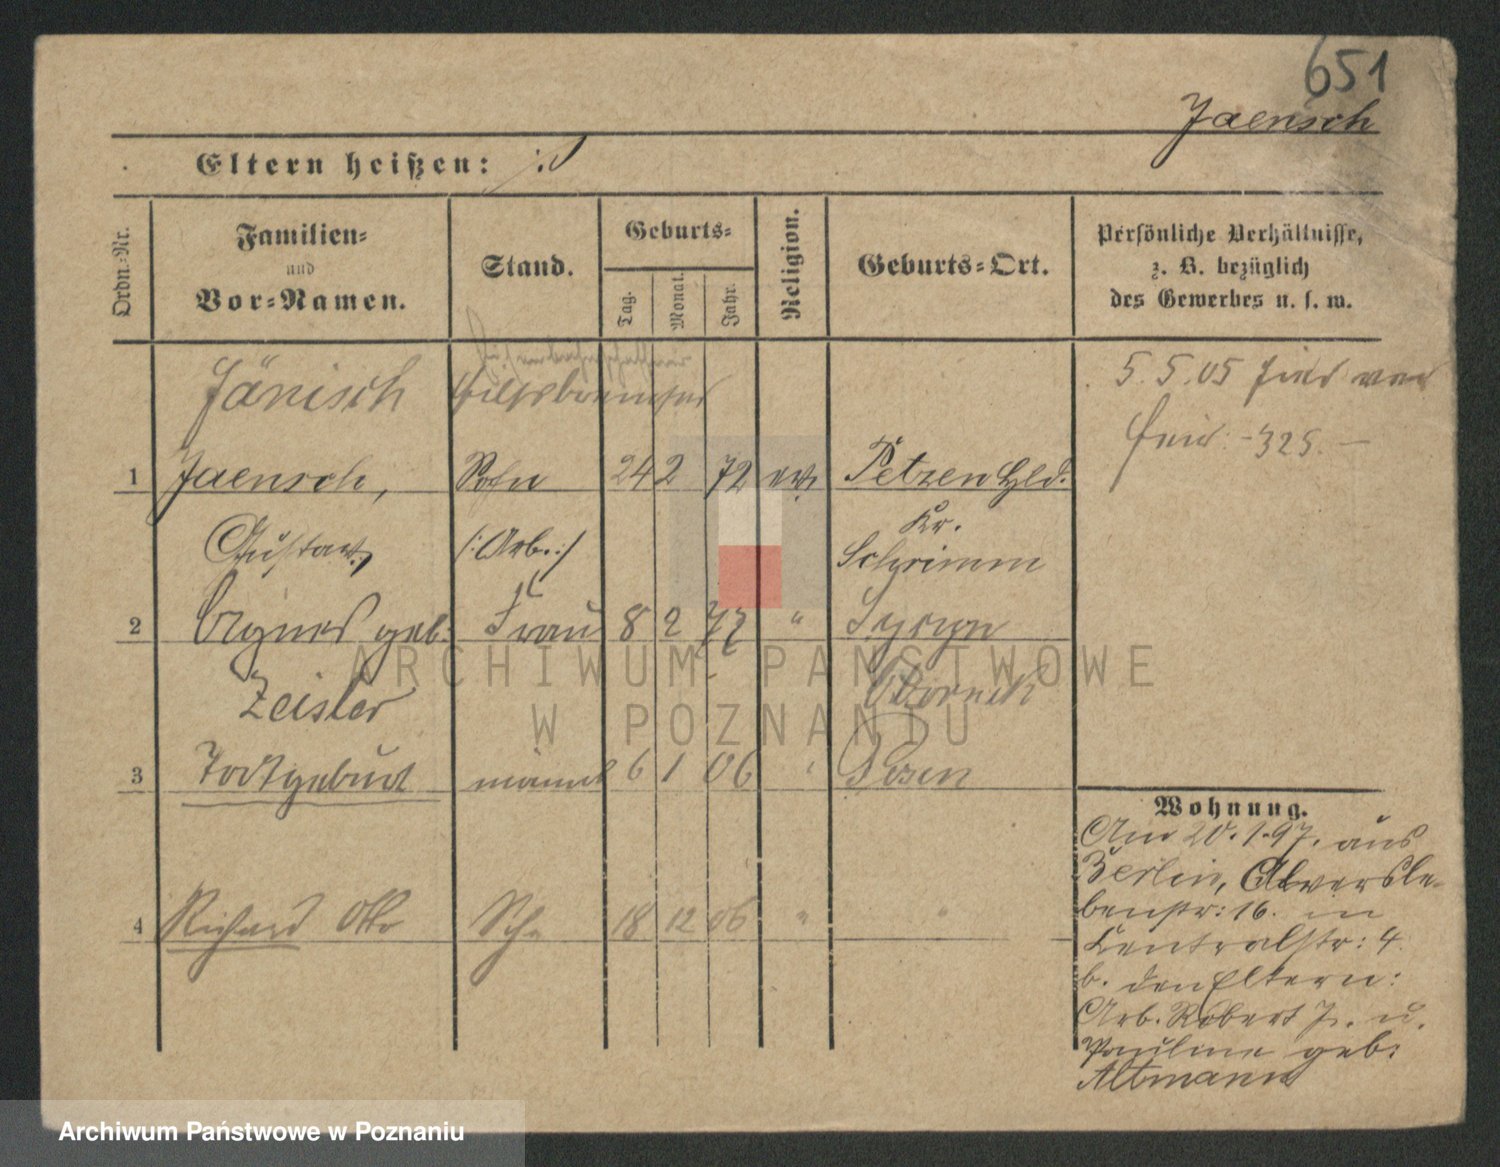 651
Jaensch
Eltern heißen:
Ordn.-Nr.
Familien-
und
Vor-Namen.
Stand.
Geburts-
Tag.
Monat.
Jahr.
Religion.
Geburts-Ort.
Persönliche Verhältnisse,
z. B. bezüglich
des Gewerbes u. s. w.
Jänisch Hilfsbremser
5.5.05
325.-
1 Jaensch, Sohn 24 2 72 ev. Petzen Hld.
Kr.
Gustav, /:Arb.:/ Schrimm
2 Agnes geb: Frau 8 2 77 "
Zeisler Obornik
3 Todtgeburt männl 6 1 06 " Posen
4 Richard Otto Sohn 18 12 06 " "
Wohnung.
Am 20.1.97. aus
Berlin, Alversle-
benstr: 16. in
Centralstr: 4.
b. den Eltern:
Arb. Robert J. u.
Pauline geb:
Altmann
ARCHIWUM PAŃSTWOWE
W POZNANIU
Archiwum Państwowe w Poznaniu